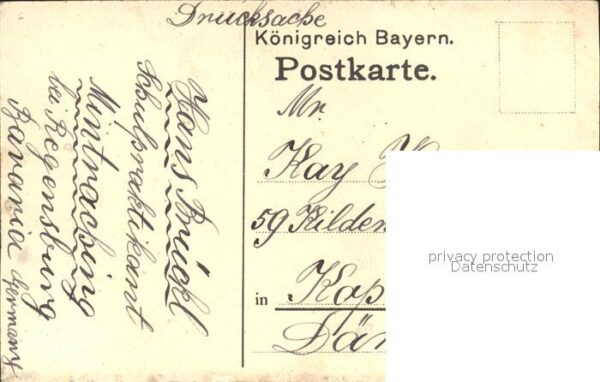 Drucksache
Königreich Bayern.
Postkarte.
Mr.
Kay
59 Kilde
in Kop
Dän
Hans Brückl
Schulpraktikant
Mintraching
bei Regensburg
Bavaria Germany
privacy protection
Datenschutz